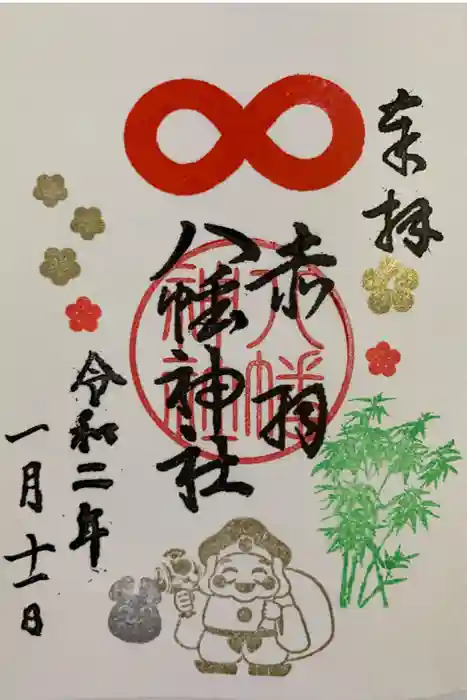 奉拝
赤羽
八幡神社
令和二年
一月十一日
八幡
神社